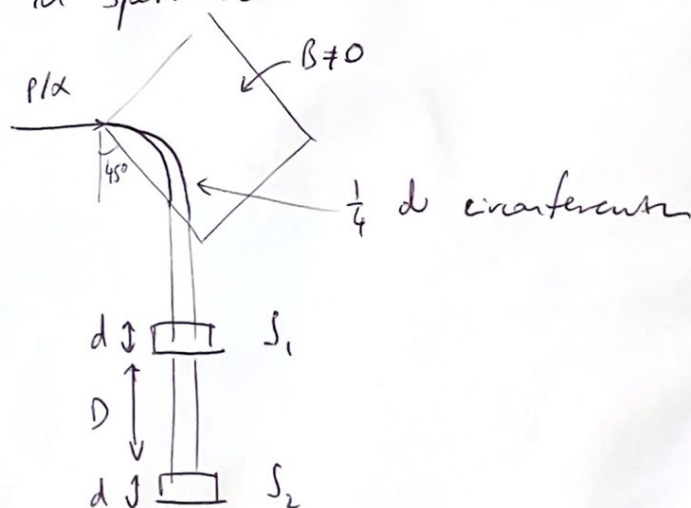 B≠0
P/α
45°
1/4 di circonferenza
d S₁
D
d S₂